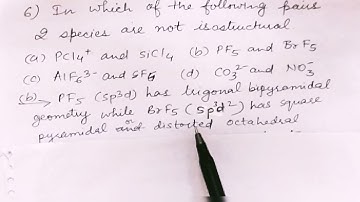 6) In which of the following pairs
2 species are not isostructural
(a) PCl₄⁺ and SiCl₄ (b) PF₅ and BrF₅
(c) AlF₆³⁻ and SF₆ (d) CO₃²⁻ and NO₃⁻
(b) → PF₅ (sp3d) has trigonal bipyramidal
geometry while BrF₅ (sp³d²) has square
pyramidal or distorted octahedral